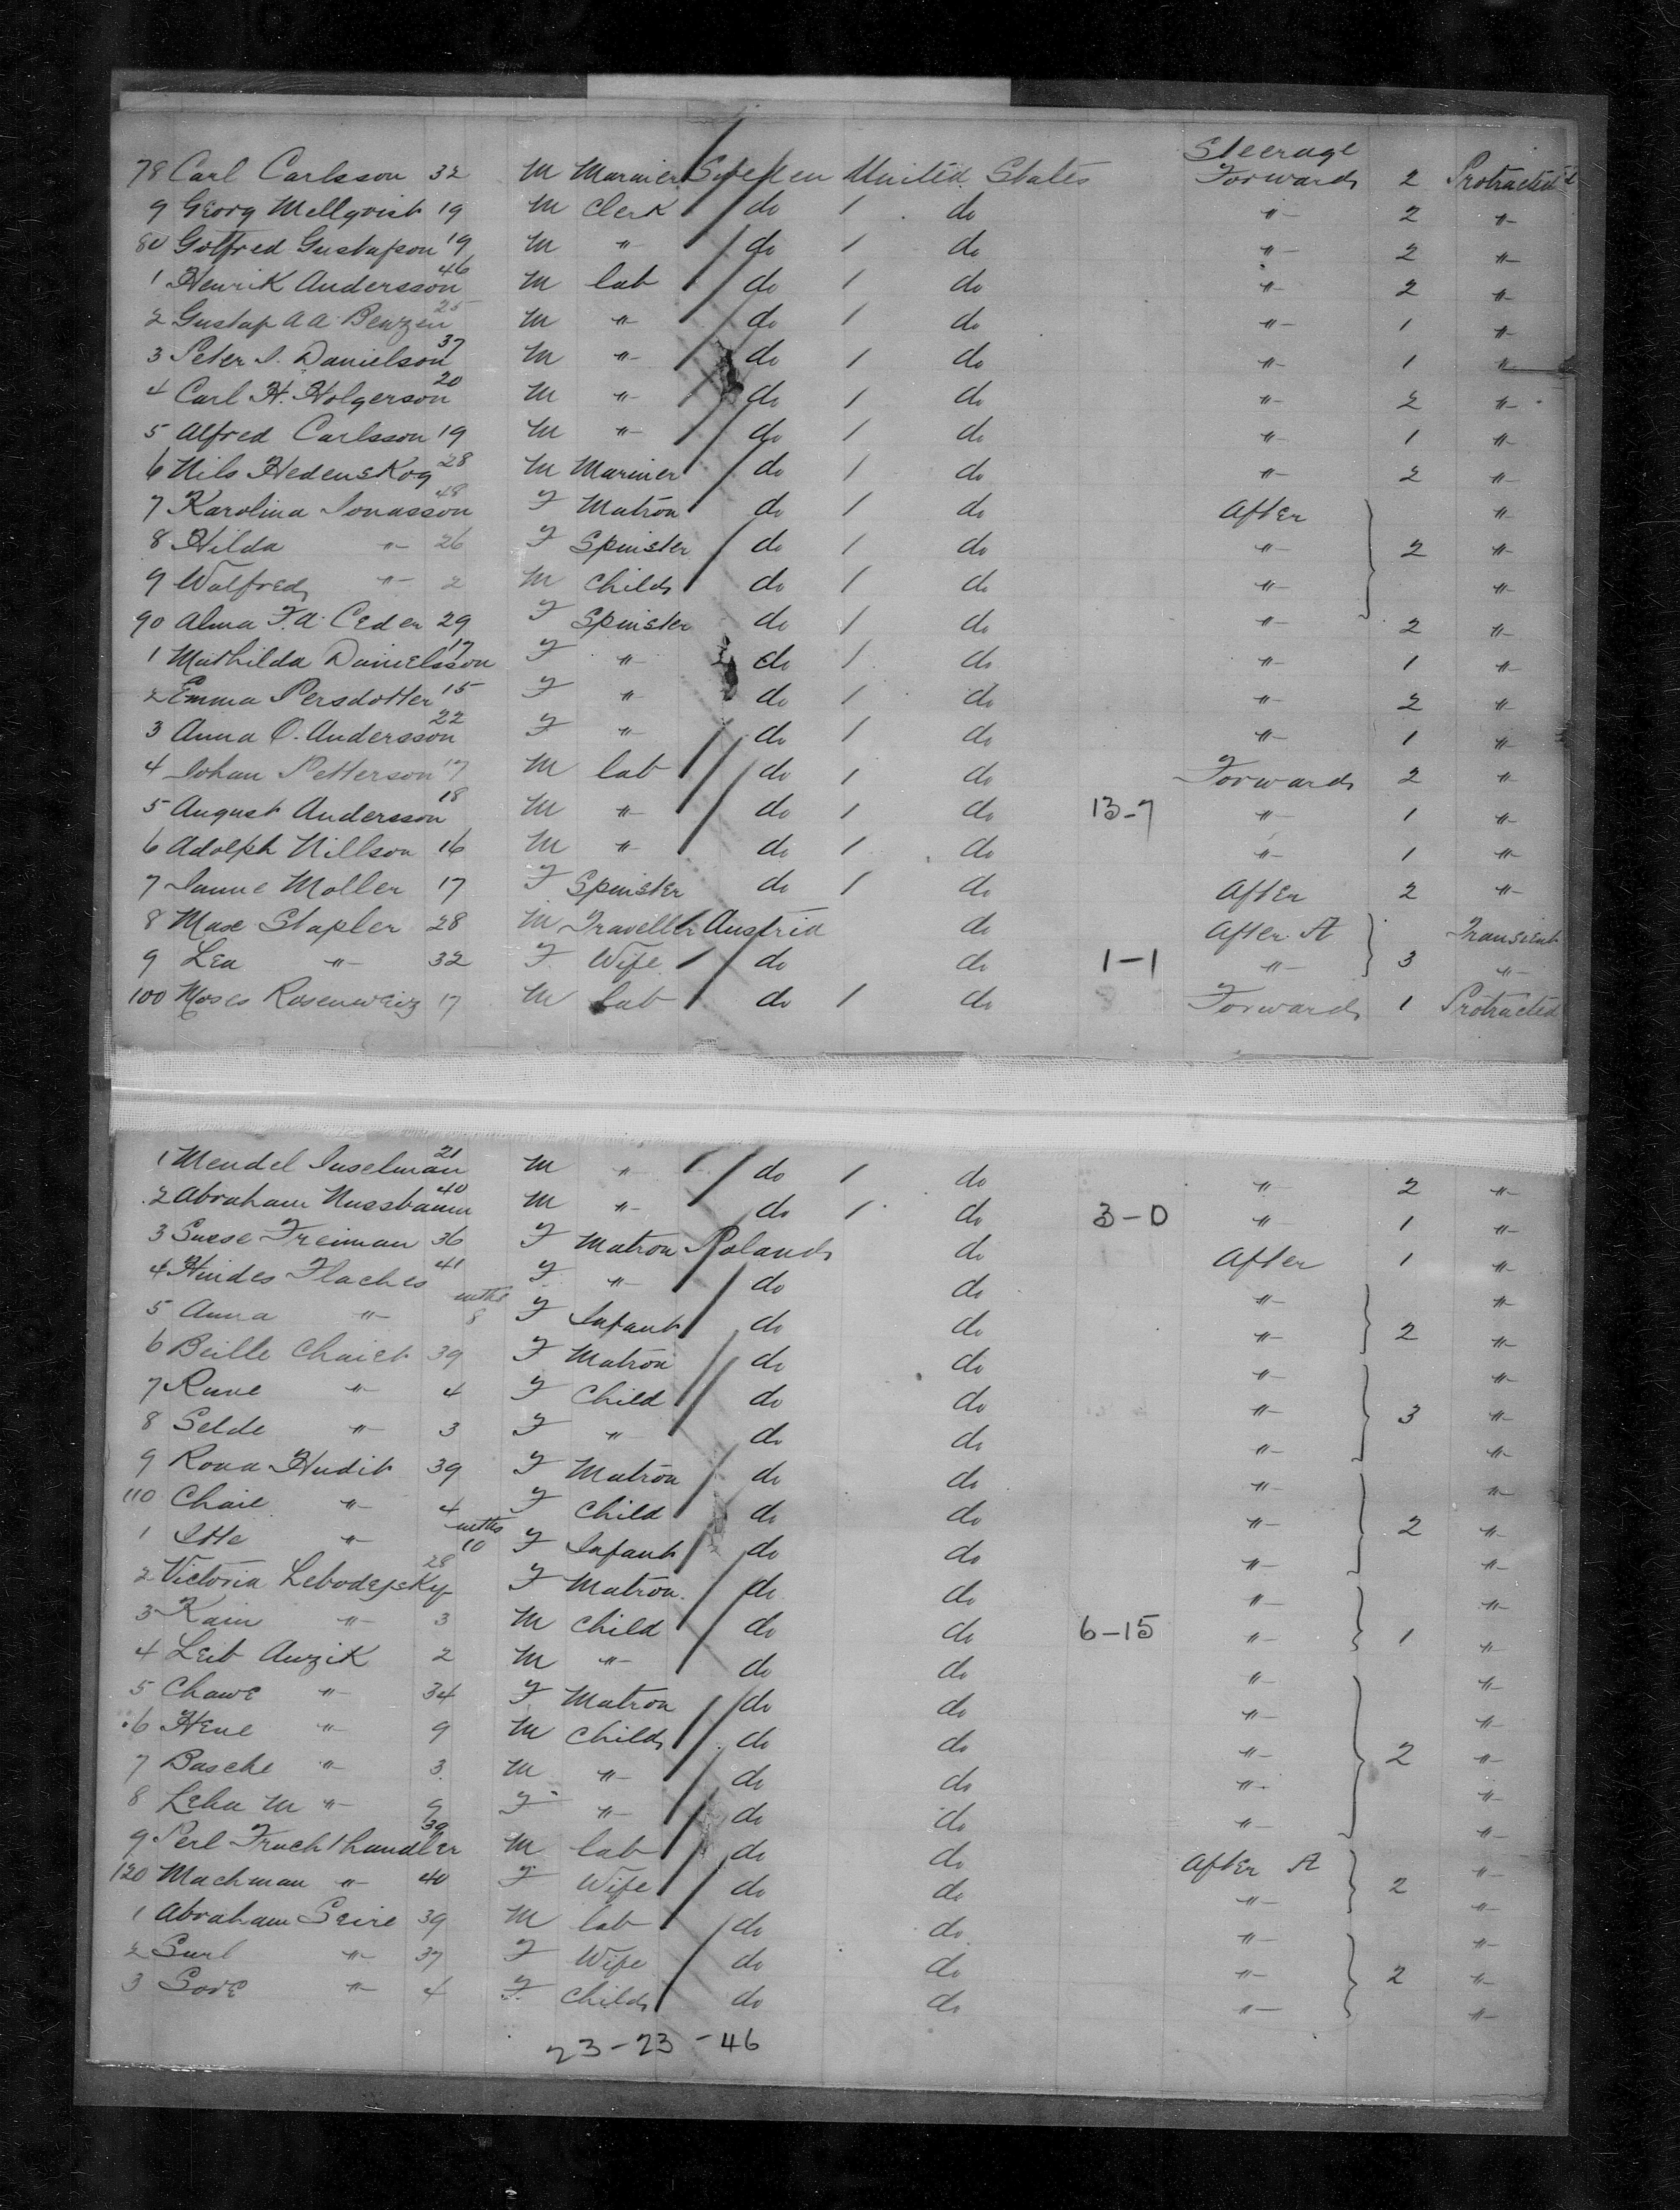 Steerage
78 Carl Carlsson 32 M Mariner Sweden United States Forwards 2 Protracted
9 Georg Mellqvist 19 M Clerk do 1 do " 2 "
80 Gotfred Gustafson 19 M " do 1 do " 2 "
1 Henrik Andersson 46 M lab do 1 do " 2 "
2 Gustaf A A Benzen 25 M " do 1 do " 1 "
3 Peter J. Danielson 37 M " do 1 do " 1 "
4 Carl H. Holgerson 20 M " do 1 do " 2 "
5 Alfred Carlsson 19 M " do 1 do " 1 "
6 Nils Hedenskog 28 M Mariner do 1 do " 2 "
7 Karolina Jonasson 48 F Matron do 1 do After "
8 Hilda " 26 F Spinster do 1 do " 2 "
9 Walfred " 2 M Child do 1 do " "
90 Alma F. A. Ceder 29 F Spinster do 1 do " 2 "
1 Mathilda Danielsson 17 F " do 1 do " 1 "
2 Emma Persdotter 15 F " do 1 do " 2 "
3 Anna C. Andersson 22 F " do 1 do " 1 "
4 Johan Petterson 17 M lab do 1 do Forwards 2 "
5 August Andersson 18 M " do 1 do 13-7 " 1 "
6 Adolph Nillson 16 M " do 1 do " 1 "
7 Janne Moller 17 F Spinster do 1 do After 2 "
8 Max Stapler 28 M Traveller Austria do After A Transient
9 Lea " 32 F Wife do do 1-1 " 3 "
100 Moses Rosenweiz 17 M lab do 1 do Forwards 1 Protracted
1 Mendel Inselman 21 M " do 1 do " 2 "
2 Abraham Nussbaum 40 M " do 1 do 3-0 " 1 "
3 Suese Freiman 36 F Matron Poland do After 1 "
4 Hindes Flaches 41 F " do do " "
5 Anna " mths 8 F Infant do do " 2 "
6 Beille Chaiet 39 F Matron do do " "
7 Rune " 4 F Child do do " 3 "
8 Selde " 3 F " do do " "
9 Rona Hudit 39 F Matron do do " "
110 Chaie " 4 F Child do do " 2 "
1 Itte " mths 10 F Infant do do " "
2 Victoria Lebodefsky 28 F Matron do do " "
3 Kain " 3 M Child do do 6-15 " 1 "
4 Leib Auzik 2 M " do do " "
5 Chawe " 34 F Matron do do " "
6 Hene " 9 M Child do do " 2 "
7 Basche " 3 M " do do " "
8 Leha M " 9 F " do do " "
9 Perl Fruchthandler 39 M lab do do After A "
120 Machman " 40 F Wife do do " 2 "
1 Abraham Seire 39 M lab do do " "
2 Surl " 37 F Wife do do " 2 "
3 Sore " 4 F Child do do " "
23-23-46